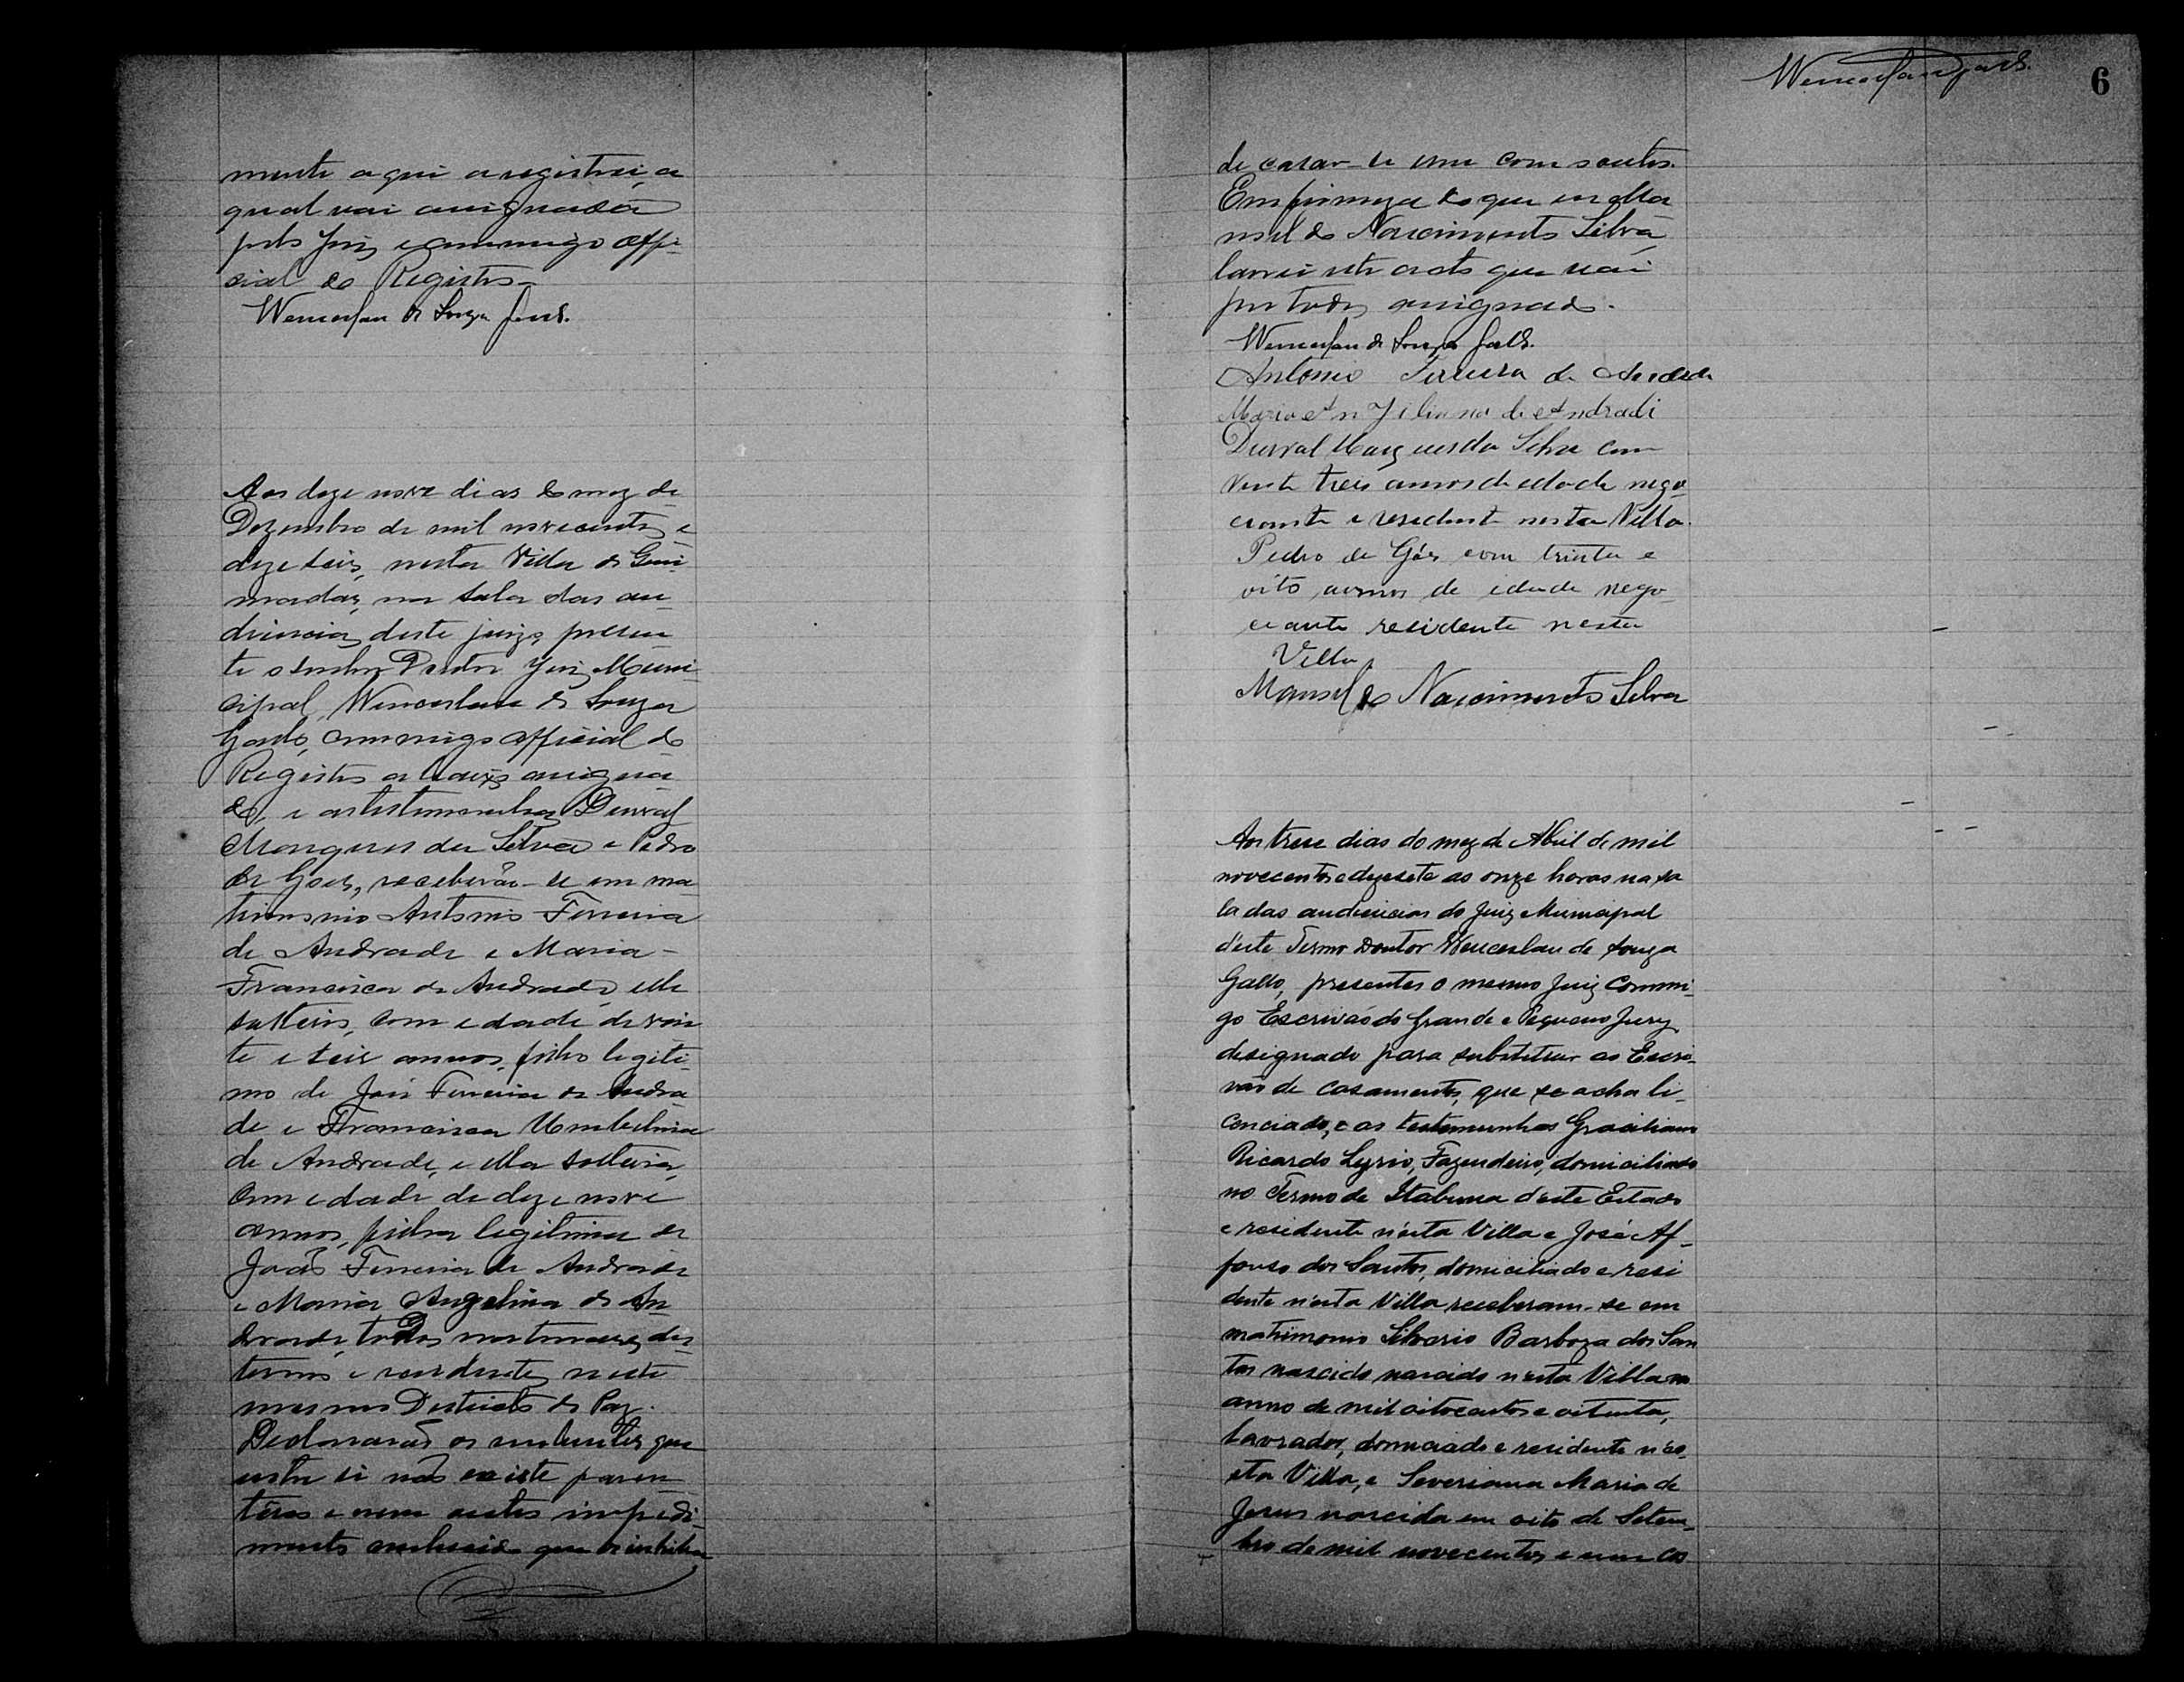 mente aqui a registrei, a
qual vai assignada
pelo Juiz e commigo offi-
cial do Registro.
Wenceslau de Souza
Aos deze nove dias do mez de
Dezembro de mil novecentos e
deze seis, nesta Villa de
na sala das au-
diencias deste juizo, presen
te o Senhor Doutor Juiz Muni
cipal, Wenceslau de Souza
Gallo, commigo official do
Registro abaixo assigna
do, e as testemunhas Durval
Marques da Silva e Pedro
de Goes, receberão-se em ma
trimonio Antonio Ferreira
de Andrade e Maria
Francisca de Andrade, elle
solteiro, com edade de vin
te e seis annos, filho legiti-
mo de José Ferreira de Andra
de e Francisca Umbelina
de Andrade, e ella solteira,
com edade de deze nove
annos, filha legitima de
João Ferreira de Andrade
e Maria Angelina de An
drade, todos naturaes des
termo e residentes neste
mesmo Districto de Paz.
Declararão os nubentes que
entre si não existe paren
tesco e nem outro impedi
mento conhecido que os
6
de casar-se um com o outro.
Em firmeza do que eu Ma
noel do Nascimento Silva
lavrei este acto que vai
por todos assignado.
Wenceslau de Souza
Antonio Ferreira de Andrade
Maria de Andradi
Durval Marques da Silva com
vinte treis annos de edade nego-
ciante e residente nesta Villa.
Pedro de Góes com trinta e
oito annos de idade nego-
ciante residente nesta
Villa
Manoel do Nascimento Silva
Aos trese dias do mez de Abril de mil
novecentos e dezesete as onze horas na sa
la das audiencias do Juiz Municipal
d'este Termo Doutor Wenceslau de Souza
Gallo, presentes o mesmo Juiz commi-
go Escrivão do Grande e Pequeno Jury
designado para substituir ao Escri-
vão de casamentos, que se acha li-
cenciado, e as testemunhas Graciliano
Ricardo Lyrio, Fazendeiro, domiciliado
no Termo de Itabuna d'este Estado
e residente n'esta Villa e José Af-
fonso dos Santos, domiciliado e resi
dente n'esta Villa receberam-se em
matrimonio Silverio Barboza dos San
tos nascido nascido n'esta Villa no
anno de mil oitocentos e oitenta,
lavrador, domiciado e residente n'es-
sta Villa, e Severiana Maria de
Jesus nascida em oito de Setem-
bro de mil novecentos e um